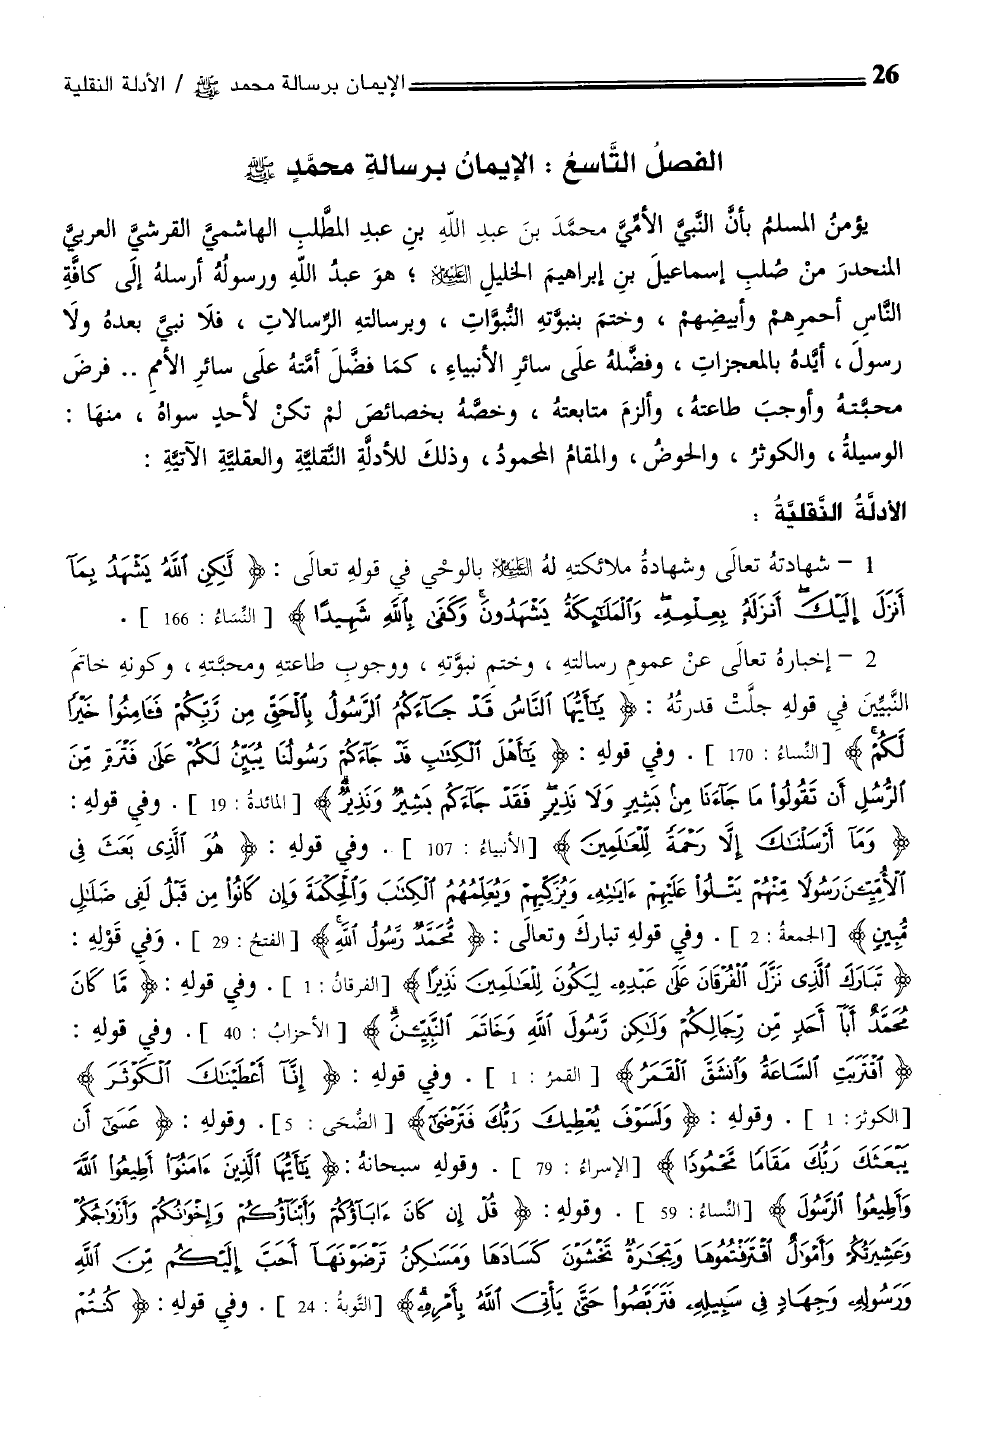 26 الإيمان برسالة محمد ﷺ / الأدلة النقلية
الفصلُ التَّاسعُ : الإيمانُ برسالةِ محمَّدٍ ﷺ
يؤمنُ المسلمُ بأنَّ النَّبيَّ الأمِّيَّ محمَّدَ بنَ عبدِ اللّهِ بنِ عبدِ المطَّلبِ الهاشميَّ القرشيَّ العربيَّ
المنحدرَ منْ صُلبِ إسماعيلَ بنِ إبراهيمَ الخليلِ العَلَيْهِ السَّلَام ؛ هوَ عبدُ اللّهِ ورسولُهُ أرسلهُ إلَى كافَّةِ
النَّاسِ أحمرِهمْ وأبيضِهمْ ، وختمَ بنبوَّتهِ النُّبوَّاتِ ، وبرسالتهِ الرِّسالاتِ ، فلَا نبيَّ بعدهُ ولَا
رسولَ ، أيَّدهُ بالمعجزاتِ ، وفضَّلهُ علَى سائرِ الأنبياءِ ، كمَا فضَّلَ أمَّتهُ علَى سائرِ الأممِ .. فرضَ
محبَّتهُ وأوجبَ طاعتهُ ، وألزمَ متابعتهُ ، وخصَّهُ بخصائصَ لمْ تكنْ لأحدٍ سواهُ ، منهَا :
الوسيلةُ ، والكوثرُ ، والحوضُ ، والمقامُ المحمودُ ، وذلكَ للأدلَّةِ النَّقليَّةِ والعقليَّةِ الآتيَّةِ :
الأدلَّةُ النَّقليَّةُ :
1 – شهادتهُ تعالَى وشهادةُ ملائكتهِ لهُ العَلَيْهِ السَّلَام بالوحْيِ في قولهِ تعالَى : ﴿ لَّٰكِنِ ٱللَّهُ يَشْهَدُ بِمَآ
أَنزَلَ إِلَيْكَۖ أَنزَلَهُۥ بِعِلْمِهِۦۖ وَٱلْمَلَٰٓئِكَةُ يَشْهَدُونَۚ وَكَفَىٰ بِٱللَّهِ شَهِيدًا ﴾ [ النِّسَاءُ : 166 ] .
2 – إخبارهُ تعالَى عنْ عمومِ رسالتهِ ، وختمِ نبوَّتهِ ، ووجوبِ طاعتهِ ومحبَّتهِ ، وكونهِ خاتمَ
النَّبيِّينَ في قولهِ جلَّتْ قدرتُهُ : ﴿ يَٰٓأَيُّهَا ٱلنَّاسُ قَدْ جَآءَكُمُ ٱلرَّسُولُ بِٱلْحَقِّ مِن رَّبِّكُمْ فَـَٔامِنُوا۟ خَيْرًا
لَّكُمْۚ ﴾ [النِّساءُ : 170 ] . وفي قولهِ : ﴿ يَٰٓأَهْلَ ٱلْكِتَٰبِ قَدْ جَآءَكُمْ رَسُولُنَا يُبَيِّنُ لَكُمْ عَلَىٰ فَتْرَةٍ مِّنَ
ٱلرُّسُلِ أَن تَقُولُوا۟ مَا جَآءَنَا مِنۢ بَشِيرٍ وَلَا نَذِيرٍۖ فَقَدْ جَآءَكُم بَشِيرٌ وَنَذِيرٌۗ ﴾ [المائدةُ : 19 ] . وفي قولهِ :
﴿ وَمَآ أَرْسَلْنَٰكَ إِلَّا رَحْمَةً لِّلْعَٰلَمِينَ ﴾ [الأنبياءُ : 107 ] . وفي قولهِ : ﴿ هُوَ ٱلَّذِى بَعَثَ فِى
ٱلْأُمِّيِّـۧنَ رَسُولًا مِّنْهُمْ يَتْلُوا۟ عَلَيْهِمْ ءَايَٰتِهِۦ وَيُزَكِّيهِمْ وَيُعَلِّمُهُمُ ٱلْكِتَٰبَ وَٱلْحِكْمَةَ وَإِن كَانُوا۟ مِن قَبْلُ لَفِى ضَلَٰلٍ
مُّبِينٍ ﴾ [الجمعةُ : 2 ] . وفي قولهِ تباركَ وتعالَى : ﴿ مُّحَمَّدٌ رَّسُولُ ٱللَّهِۚ ﴾ [ الفتحُ : 29 ] . وَفي قَوْلهِ :
﴿ تَبَارَكَ ٱلَّذِى نَزَّلَ ٱلْفُرْقَانَ عَلَىٰ عَبْدِهِۦ لِيَكُونَ لِلْعَٰلَمِينَ نَذِيرًا ﴾ [الفرقانُ : 1 ] . وفي قولهِ : ﴿ مَّا كَانَ
مُحَمَّدٌ أَبَآ أَحَدٍ مِّن رِّجَالِكُمْ وَلَٰكِن رَّسُولَ ٱللَّهِ وَخَاتَمَ ٱلنَّبِيِّـۧنَۗ ﴾ [ الأحزابُ : 40 ] . وفي قولهِ :
﴿ ٱقْتَرَبَتِ ٱلسَّاعَةُ وَٱنشَقَّ ٱلْقَمَرُ ﴾ [ القمرُ : 1 ] . وفي قولهِ : ﴿ إِنَّآ أَعْطَيْنَٰكَ ٱلْكَوْثَرَ ﴾
[الكوثرَ : 1 ] . وقولهِ : ﴿ وَلَسَوْفَ يُعْطِيكَ رَبُّكَ فَتَرْضَىٰٓ ﴾ [ الضُّحَى : 5] . وقولهِ : ﴿ عَسَىٰٓ أَن
يَبْعَثَكَ رَبُّكَ مَقَامًا مَّحْمُودًا ﴾ [الإسراءُ : 79 ] . وقولهِ سبحانهُ : ﴿ يَٰٓأَيُّهَا ٱلَّذِينَ ءَامَنُوٓا۟ أَطِيعُوا۟ ٱللَّهَ
وَأَطِيعُوا۟ ٱلرَّسُولَ ﴾ [النِّساءُ : 59 ] . وقولهِ : ﴿ قُلْ إِن كَانَ ءَابَآؤُكُمْ وَأَبْنَآؤُكُمْ وَإِخْوَٰنُكُمْ وَأَزْوَٰجُكُمْ
وَعَشِيرَتُكُمْ وَأَمْوَٰلٌ ٱقْتَرَفْتُمُوهَا وَتِجَٰرَةٌ تَخْشَوْنَ كَسَادَهَا وَمَسَٰكِنُ تَرْضَوْنَهَآ أَحَبَّ إِلَيْكُم مِّنَ ٱللَّهِ
وَرَسُولِهِۦ وَجِهَادٍ فِى سَبِيلِهِۦ فَتَرَبَّصُوا۟ حَتَّىٰ يَأْتِىَ ٱللَّهُ بِأَمْرِهِۦۗ ﴾ [التَّوبةُ : 24 ] . وفي قولهِ : ﴿ كُنتُمْ